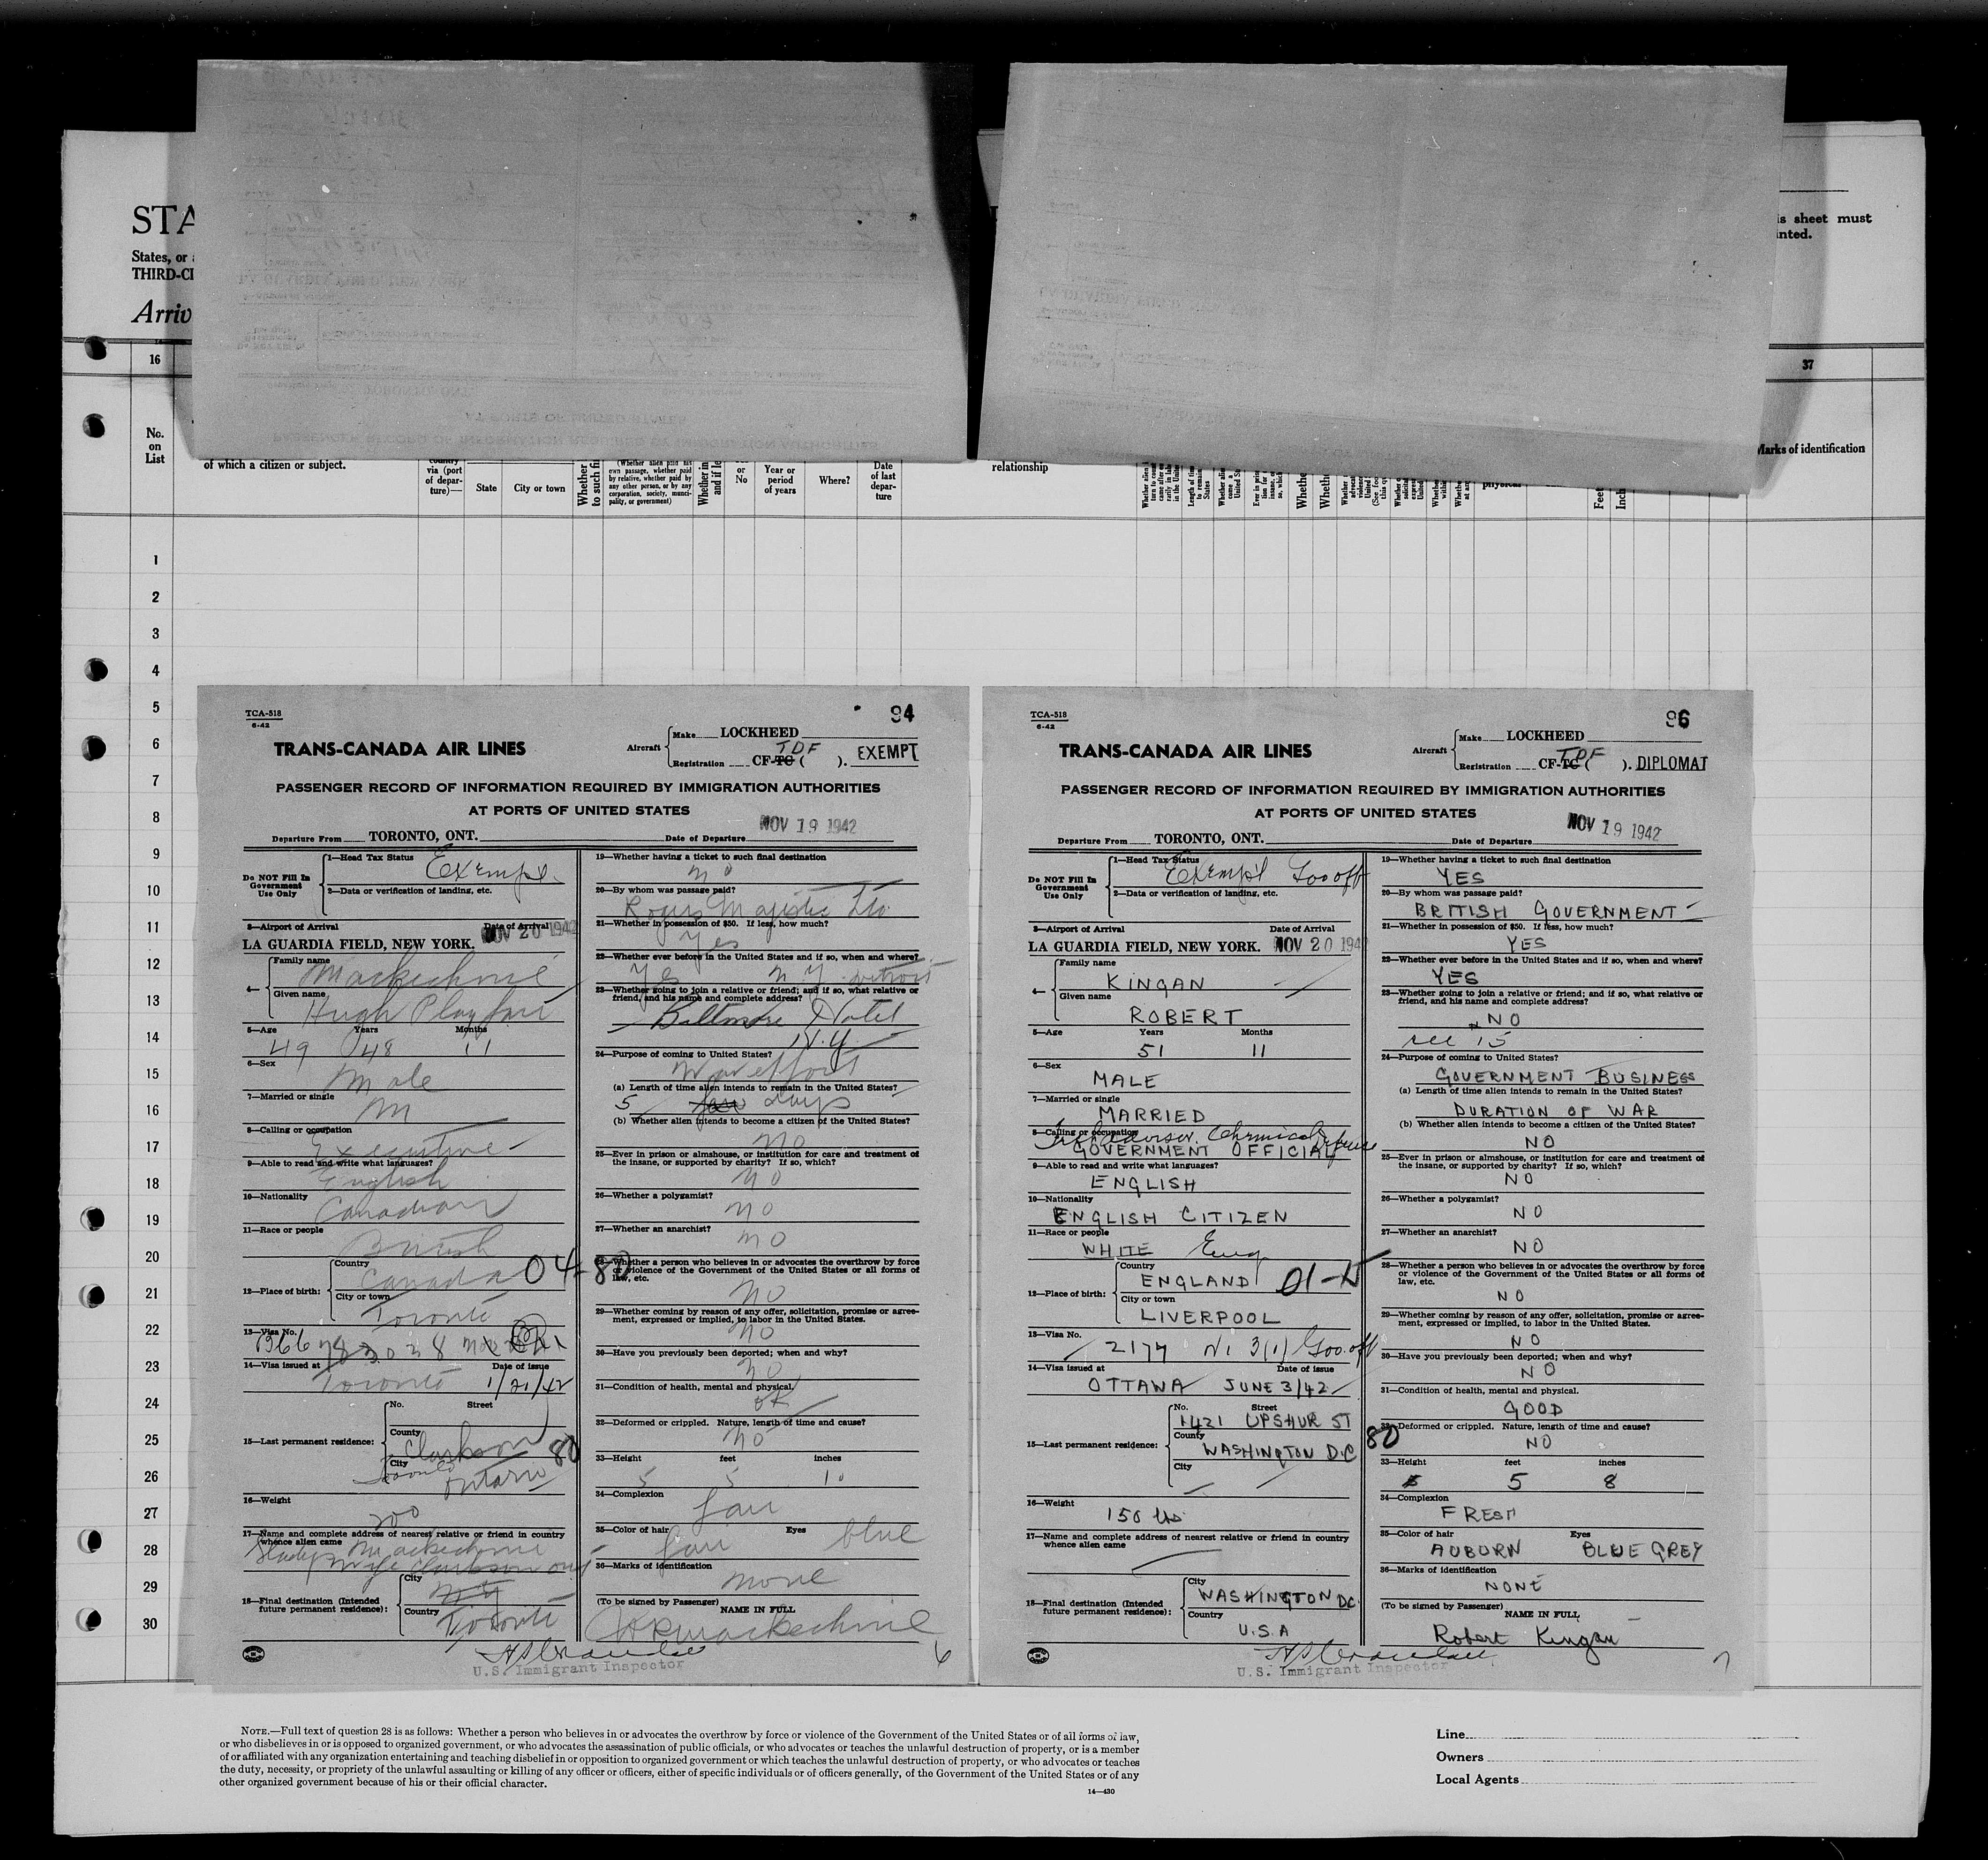 STA
States, or
THIRD-CL
Arriv
is sheet must
inted.
16
37
No.
on
List
of which a citizen or subject.
country
via (port
of depar-
ture)—
State
City or town
Whether
to such fi
(Whether alien paid his
own passage, whether paid
by relative, whether paid by
any other person, or by any
corporation, society, munici-
pality, or government)
Whether in
and if le
or
No
Year or
period
of years
Where?
Date
of last
depar-
ture
relationship
Marks of identification
1
2
3
4
5
6
7
8
9
10
11
12
13
14
15
16
17
18
19
20
21
22
23
24
25
26
27
28
29
30
TCA-518
6-42
94
TRANS-CANADA AIR LINES
Aircraft
Make LOCKHEED
Registration CF-TC ( TDF ). EXEMPT
PASSENGER RECORD OF INFORMATION REQUIRED BY IMMIGRATION AUTHORITIES
AT PORTS OF UNITED STATES
Departure From TORONTO, ONT. Date of Departure NOV 19 1942
Do NOT Fill In
Government
Use Only
1—Head Tax Status Exempt
2—Data or verification of landing, etc.
3—Airport of Arrival Date of Arrival
LA GUARDIA FIELD, NEW YORK. NOV 20 1942
4— Family name Mackechnie
Given name Hugh Playfair
5—Age Years Months
49 48 11
6—Sex
Male
7—Married or single
M
8—Calling or occupation
Executive
9—Able to read and write what languages?
English
10—Nationality
Canadian
11—Race or people
British
12—Place of birth: Country Canada 04-80
City or town Toronto
13—Visa No.
14—Visa issued at Date of issue
Toronto 1/21/42
15—Last permanent residence: No. Street
County Clarkson 80
City Toronto Ontario
16—Weight
200
17—Name and complete address of nearest relative or friend in country
whence alien came Mackechnie
Gladys wife Clarkson Ont
18—Final destination (Intended
future permanent residence): City N Y
Country Toronto
19—Whether having a ticket to such final destination
no
20—By whom was passage paid?
Rogers Majestic Ltd.
21—Whether in possession of $50. If less, how much?
Yes
22—Whether ever before in the United States and if so, when and where?
Yes N.Y. Detroit
23—Whether going to join a relative or friend; and if so, what relative or
friend, and his name and complete address?
Biltmore Hotel
N.Y
24—Purpose of coming to United States?
War effort
(a) Length of time alien intends to remain in the United States?
5 few days
(b) Whether alien intends to become a citizen of the United States?
no
25—Ever in prison or almshouse, or institution for care and treatment of
the insane, or supported by charity? If so, which?
no
26—Whether a polygamist?
no
27—Whether an anarchist?
no
28—Whether a person who believes in or advocates the overthrow by force
or violence of the Government of the United States or all forms of
law, etc.
no
29—Whether coming by reason of any offer, solicitation, promise or agree-
ment, expressed or implied, to labor in the United States.
no
30—Have you previously been deported; when and why?
no
31—Condition of health, mental and physical.
ok
32—Deformed or crippled. Nature, length of time and cause?
no
33—Height feet inches
5 5 10
34—Complexion
fair
35—Color of hair Eyes
fair blue
36—Marks of identification
none
(To be signed by Passenger)
NAME IN FULL
H P Mackechnie
U.S. Immigrant Inspector
6
TCA-518
6-42
96
TRANS-CANADA AIR LINES
Aircraft
Make LOCKHEED
Registration CF-TC ( TDF ). DIPLOMAT
PASSENGER RECORD OF INFORMATION REQUIRED BY IMMIGRATION AUTHORITIES
AT PORTS OF UNITED STATES
Departure From TORONTO, ONT. Date of Departure NOV 19 1942
Do NOT Fill In
Government
Use Only
1—Head Tax Status Exempt Gov off
2—Data or verification of landing, etc.
3—Airport of Arrival Date of Arrival
LA GUARDIA FIELD, NEW YORK. NOV 20 1942
4— Family name KINGAN
Given name ROBERT
5—Age Years Months
51 11
6—Sex
MALE
7—Married or single
MARRIED
8—Calling or occupation Chemical Defense
GOVERNMENT OFFICIAL
9—Able to read and write what languages?
ENGLISH
10—Nationality
ENGLISH CITIZEN
11—Race or people
WHITE Eng
12—Place of birth: Country ENGLAND
City or town LIVERPOOL
13—Visa No.
2177 3(1) Gov. off
14—Visa issued at Date of issue
OTTAWA JUNE 3/42
15—Last permanent residence: No. Street
1421 UPSHUR ST
County WASHINGTON D.C 80
City
16—Weight
150 lbs
17—Name and complete address of nearest relative or friend in country
whence alien came
18—Final destination (Intended
future permanent residence): City WASHINGTON DC.
Country U.S.A
19—Whether having a ticket to such final destination
YES
20—By whom was passage paid?
BRITISH GOVERNMENT
21—Whether in possession of $50. If less, how much?
YES
22—Whether ever before in the United States and if so, when and where?
YES
23—Whether going to join a relative or friend; and if so, what relative or
friend, and his name and complete address?
NO
see 15
24—Purpose of coming to United States?
GOVERNMENT BUSINESS
(a) Length of time alien intends to remain in the United States?
DURATION OF WAR
(b) Whether alien intends to become a citizen of the United States?
NO
25—Ever in prison or almshouse, or institution for care and treatment of
the insane, or supported by charity? If so, which?
NO
26—Whether a polygamist?
NO
27—Whether an anarchist?
NO
28—Whether a person who believes in or advocates the overthrow by force
or violence of the Government of the United States or all forms of
law, etc.
NO
29—Whether coming by reason of any offer, solicitation, promise or agree-
ment, expressed or implied, to labor in the United States.
NO
30—Have you previously been deported; when and why?
NO
31—Condition of health, mental and physical.
GOOD
32—Deformed or crippled. Nature, length of time and cause?
NO
33—Height feet inches
5 8
34—Complexion
FRESH
35—Color of hair Eyes
AUBURN BLUE GREY
36—Marks of identification
NONE
(To be signed by Passenger)
NAME IN FULL
Robert Kingan
U.S. Immigrant Inspector
7
NOTE.—Full text of question 28 is as follows: Whether a person who believes in or advocates the overthrow by force or violence of the Government of the United States or of all forms of law,
or who disbelieves in or is opposed to organized government, or who advocates the assassination of public officials, or who advocates or teaches the unlawful destruction of property, or is a member
of or affiliated with any organization entertaining and teaching disbelief in or opposition to organized government or which teaches the unlawful destruction of property, or who advocates or teaches
the duty, necessity, or propriety of the unlawful assaulting or killing of any officer or officers, either of specific individuals or of officers generally, of the Government of the United States or of any
other organized government because of his or their official character.
14—430
Line
Owners
Local Agents